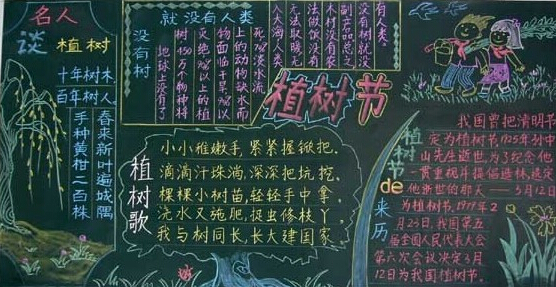 名人
谈 植树
十年树木
百年树人。
手种黄柑二百株
春来新叶遍城隅
没有树
就没有人类
地球上没有了
树,450万个物种将
灭绝,以上的植
物面临干旱,以
上的动物缺水而
死,淡水流
入大海,人类
无法取暖,无
法做饭,没有
木材,没有农
副产品,总之,
没有树就没
有人类。
植树节
植树歌
小小稚嫩手,紧紧握锨把.
滴滴汗珠淌,深深把坑挖.
棵棵小树苗,轻轻手中拿.
浇水又施肥,捉虫修枝丫.
我与树同长,长大建国家
植树节de来历
我国曾把清明节
定为植树节1925年孙中
山先生逝世,为了纪念他
一贯重视并提倡造林,规定
他逝世的那天——3月12日
为植树节,1979年2
月23日,我国第五
届全国人民代表大会
第六次会议决定3月
12日为我国植树节。